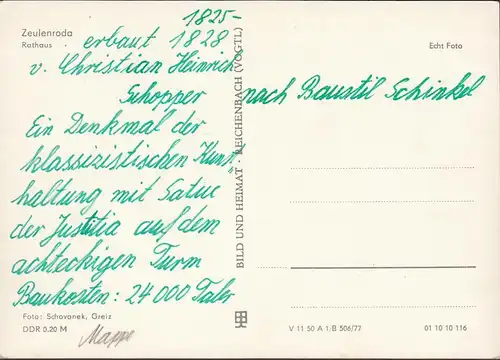 Zeulenroda
Rathaus
1825-
erbaut 1828
v. Christian Heinrich
Schopper nach Baustil Schinkel
Ein Denkmal der
klassizistischen Kunst-
haltung mit Satue
der Justitia auf dem
achteckigen Turm
Baukosten: 24 000 Taler
Foto: Schovanek, Greiz
DDR 0.20 M
Mappe
BILD UND HEIMAT · REICHENBACH (VOGTL)
Echt Foto
V 11 50 A 1/B 506/77
01 10 10 116